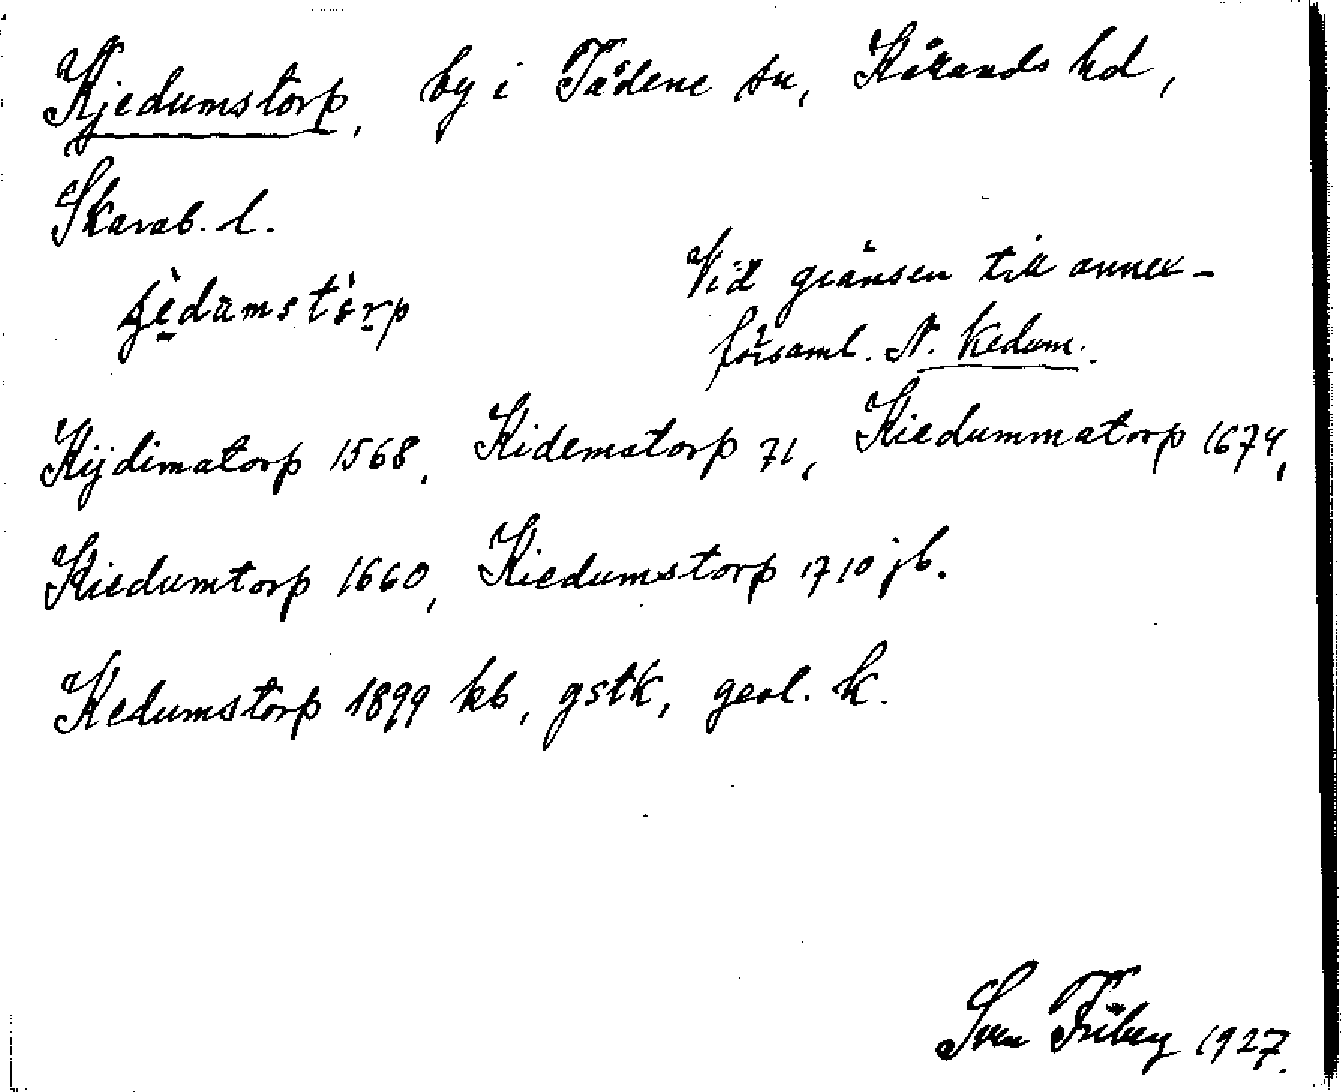 Kjedumstorp, by i Tådene sn, Kållands hd,
Skarab. l.
Vid gränsen till annex-
församl. N. Kedum.
Kijdimatorp 1568, Kidemstorp 71, Kiedummatorp 1674,
Kiedumtorp 1660, Kiedumstorp 1710 jb.
Kedumstorp 1899 kb, gstk, geol. k.
Sven Friberg 1927.